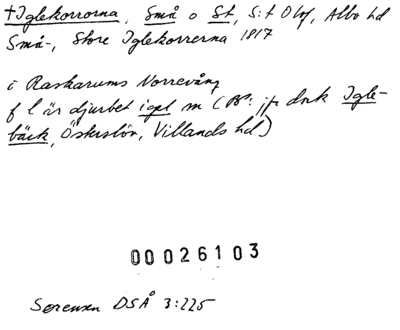 †Iglekorrorna, Små o St, S:t Olof, Albo hd
Små-, Store Iglekorrerna 1817
i Raskarums Norrevång
f l är djurbet igel m (PS: jfr dock Igle-
bäck, Österslöv, Villands hd)
00026103
Sörensen DSÅ 3:225